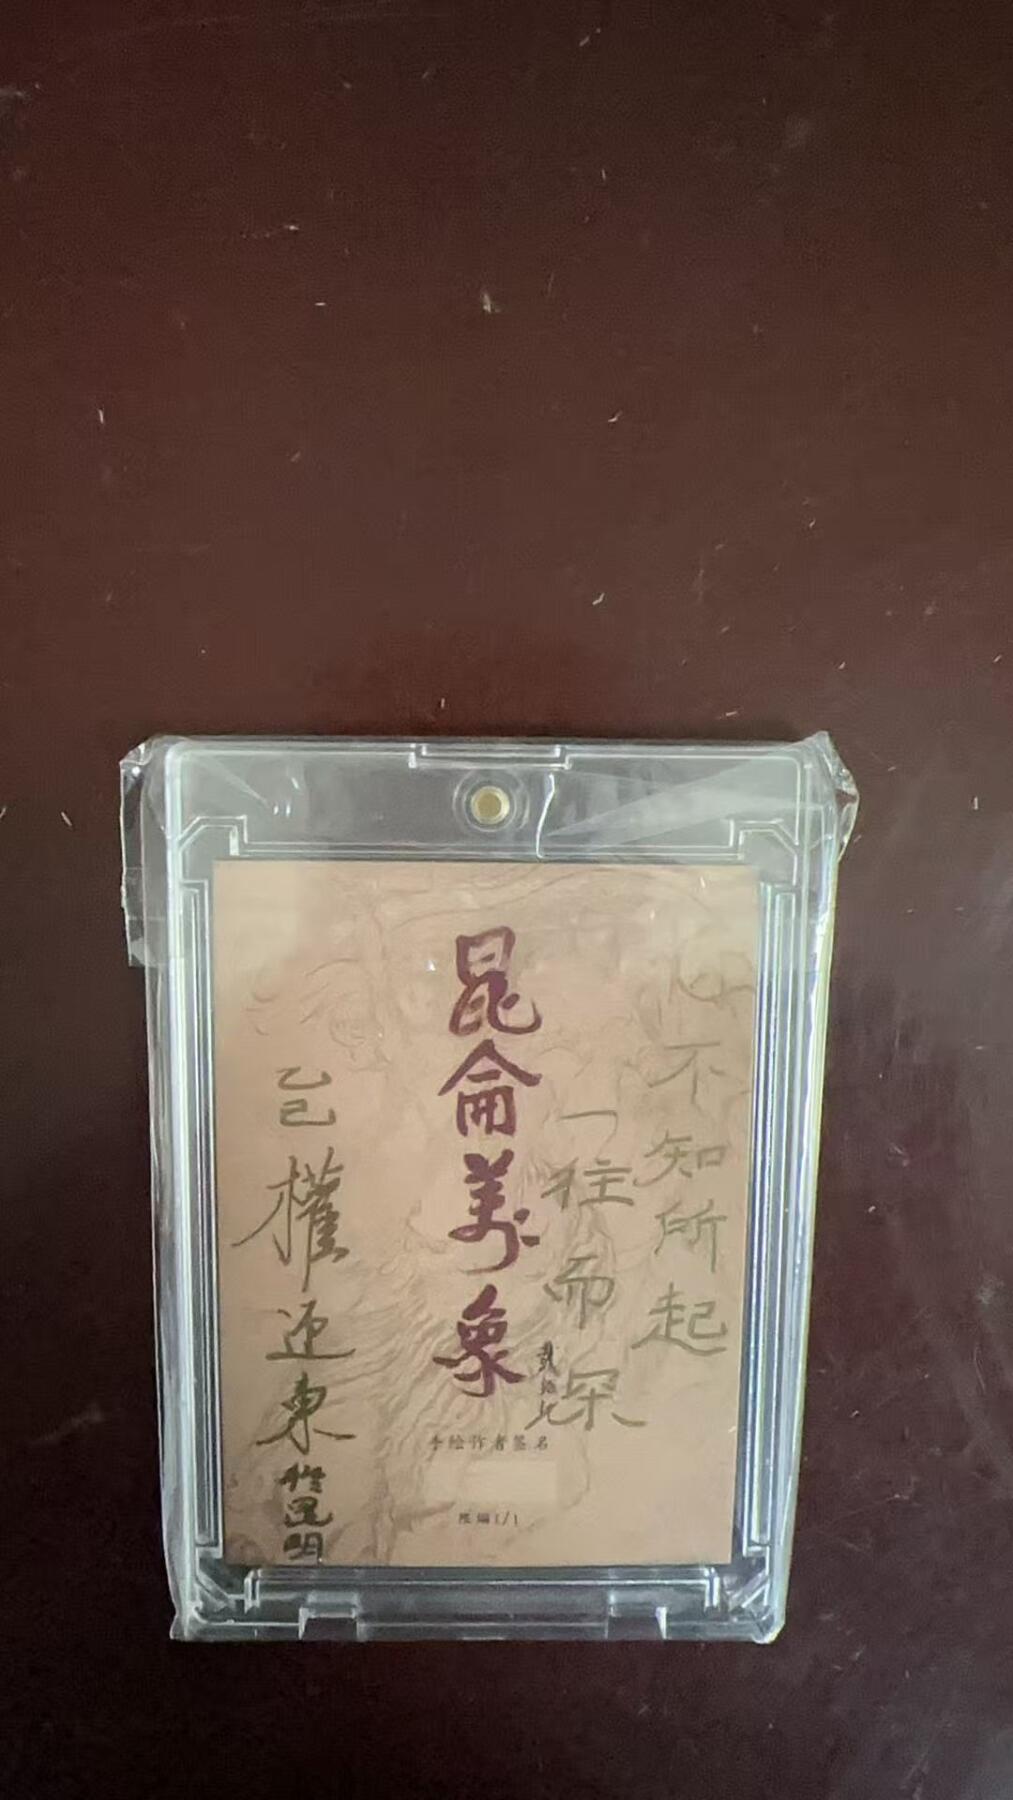 心不知所起
一往而深
昆侖万象
乙巳 權迎東
昆明
手绘作者签名
限编1/1